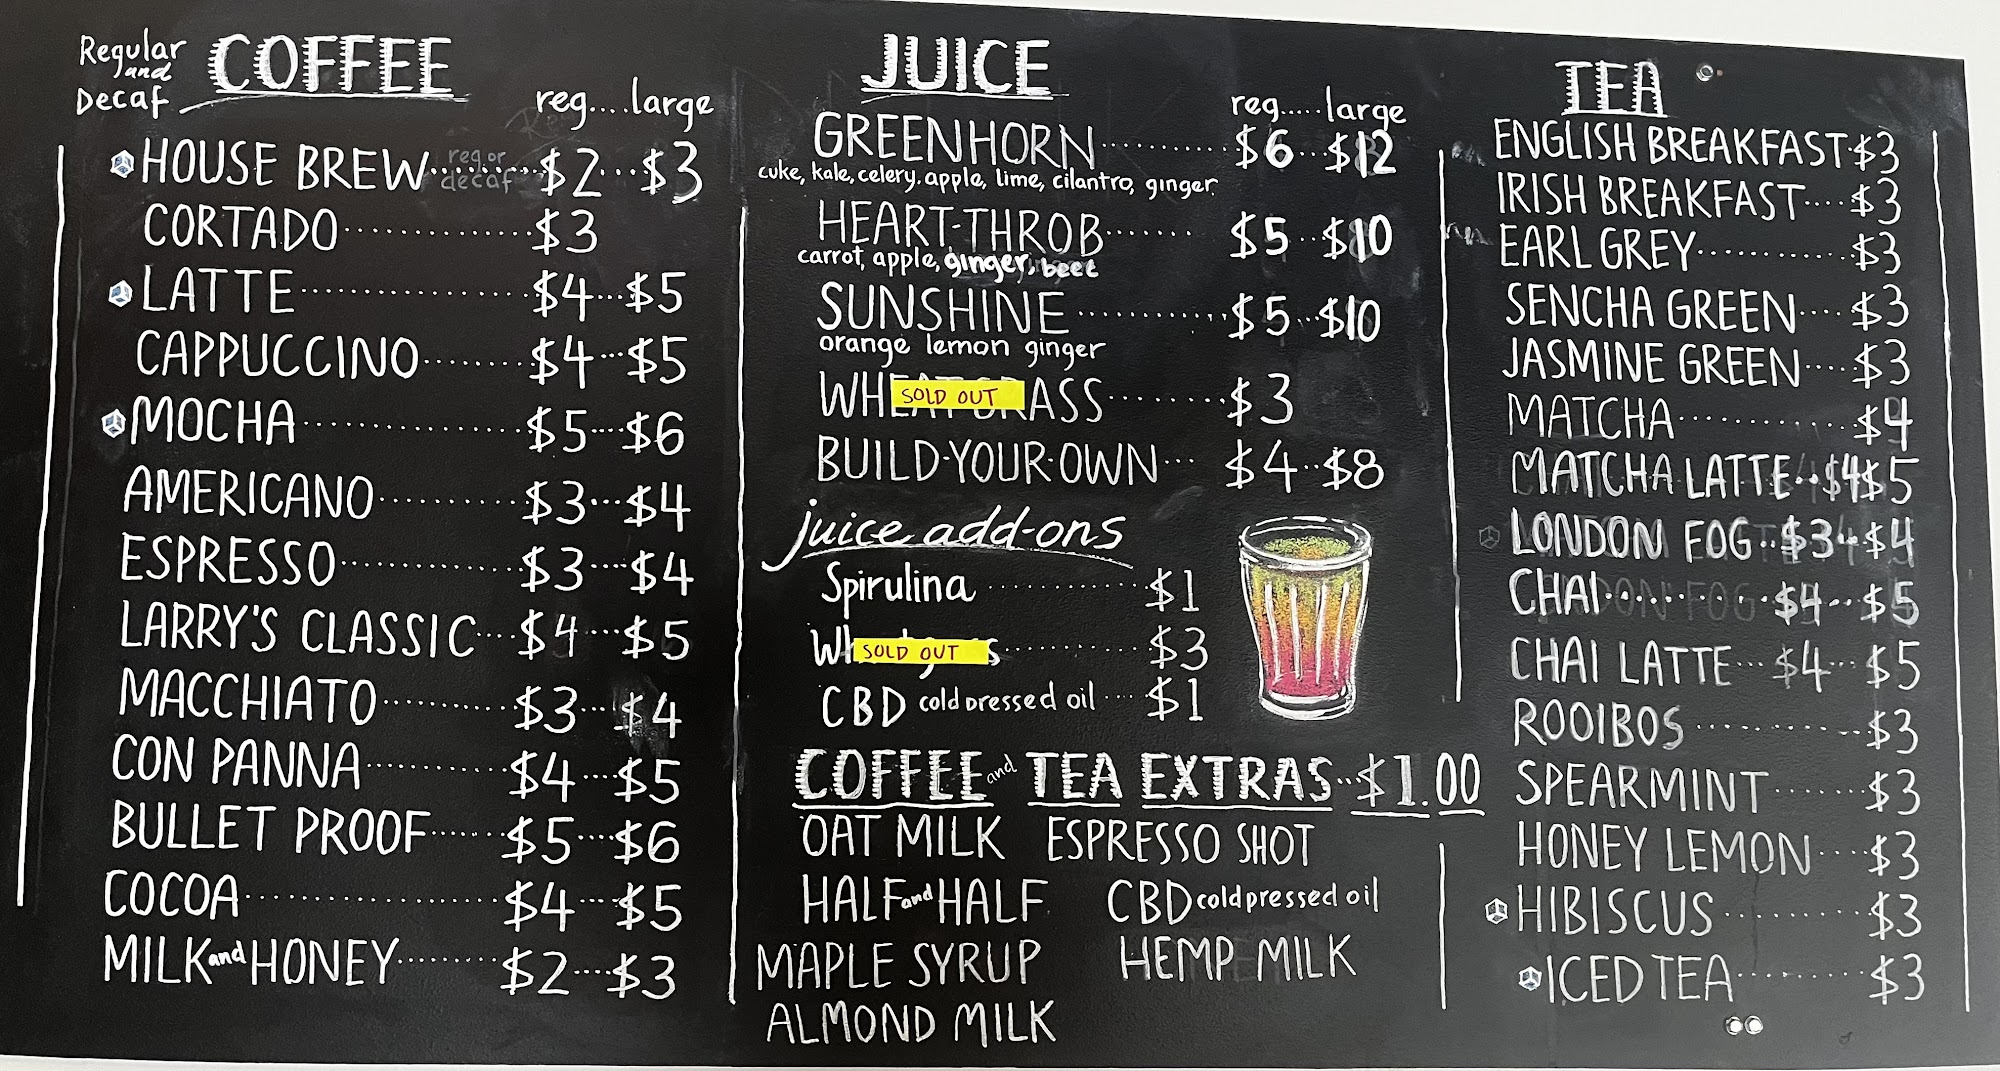 Regular and Decaf
COFFEE
reg....large
HOUSE BREW reg or decaf $2...$3
CORTADO $3
LATTE $4...$5
CAPPUCCINO $4...$5
MOCHA $5...$6
AMERICANO $3...$4
ESPRESSO $3...$4
LARRY'S CLASSIC $4...$5
MACCHIATO $3...$4
CON PANNA $4...$5
BULLET PROOF $5...$6
COCOA $4...$5
MILK and HONEY $2...$3
JUICE
reg.....large
GREENHORN $6...$12
cuke, kale, celery. apple, lime, cilantro, ginger
HEART-THROB $5..$10
carrot, apple, ginger, beet
SUNSHINE $5..$10
orange lemon ginger
WHEATGRASS $3
SOLD OUT
BUILD-YOUR-OWN $4..$8
juice add-ons
Spirulina $1
Wheatgrass $3
SOLD OUT
CBD cold pressed oil $1
COFFEE and TEA EXTRAS..$1.00
OAT MILK ESPRESSO SHOT
HALF and HALF CBD cold pressed oil
MAPLE SYRUP HEMP MILK
ALMOND MILK
TEA
ENGLISH BREAKFAST $3
IRISH BREAKFAST $3
EARL GREY $3
SENCHA GREEN $3
JASMINE GREEN $3
MATCHA $4
MATCHA LATTE $4 $5
LONDON FOG $3..$4
CHAI $4..$5
CHAI LATTE $4..$5
ROOIBOS $3
SPEARMINT $3
HONEY LEMON $3
HIBISCUS $3
ICED TEA $3